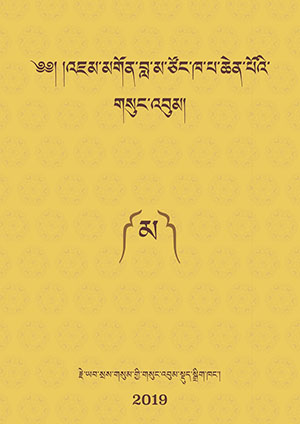 ༄༅། །འཇམ་མགོན་བླ་མ་ཙོང་ཁ་པ་ཆེན་པོའི་
གསུང་འབུམ།
མ
རྗེ་ཡབ་སྲས་གསུམ་གྱི་གསུང་འབུམ་སྡུད་སྒྲིག་ཁང་།
2019